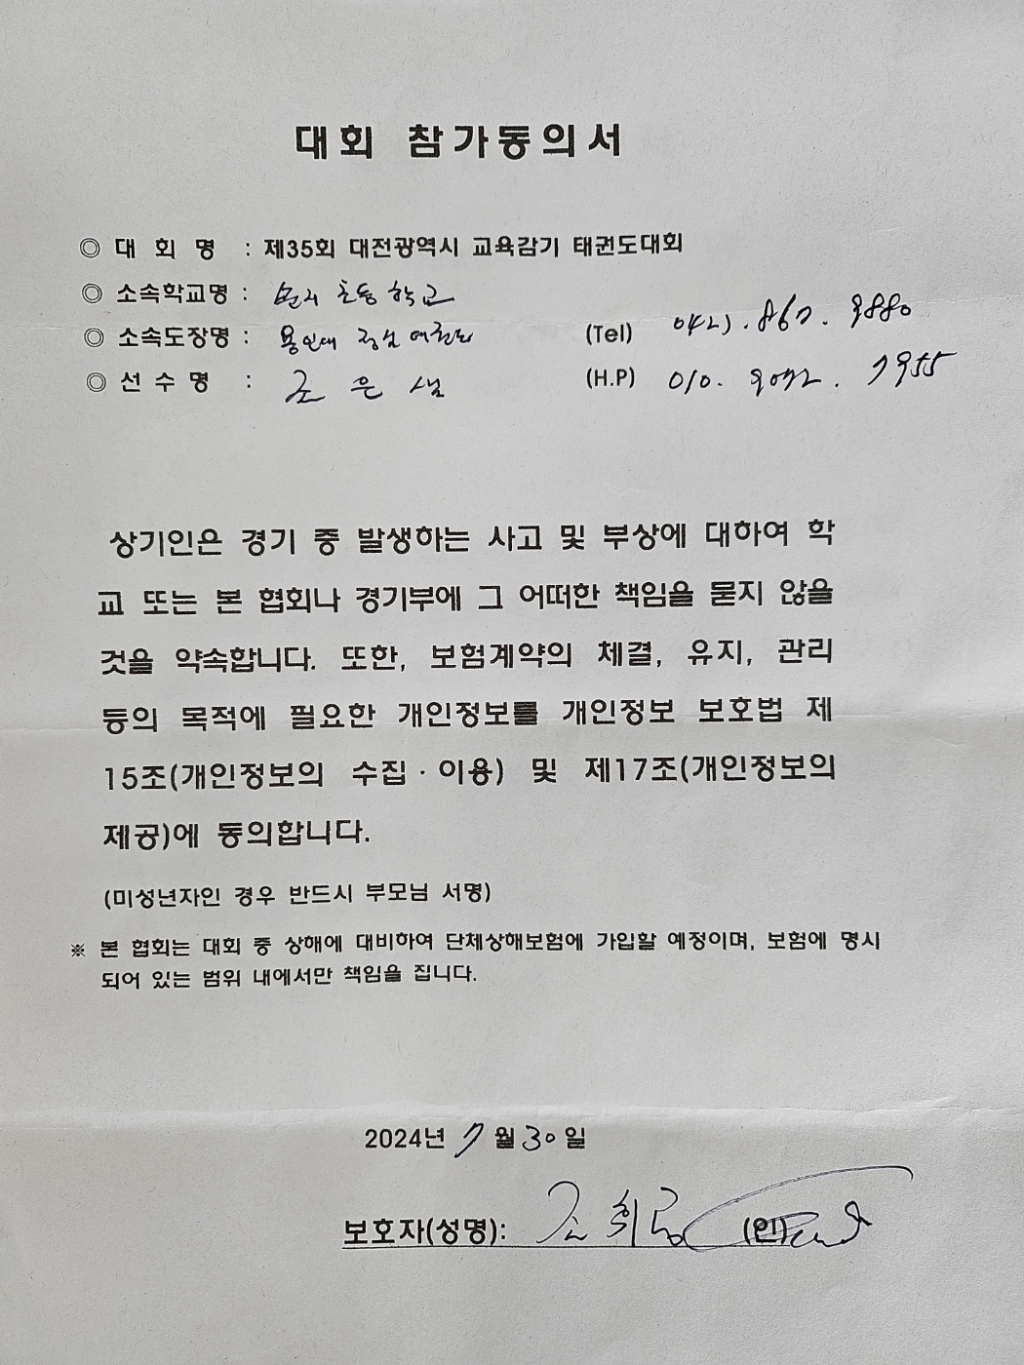 대회 참가동의서
◎ 대 회 명 : 제35회 대전광역시 교육감기 태권도대회
◎ 소속학교명 : 초등학교
◎ 소속도장명 : 용인대 (Tel) 042).867.9880
◎ 선 수 명 : 조은샘 (H.P) 010. 7955
상기인은 경기 중 발생하는 사고 및 부상에 대하여 학
교 또는 본 협회나 경기부에 그 어떠한 책임을 묻지 않을
것을 약속합니다. 또한, 보험계약의 체결, 유지, 관리
등의 목적에 필요한 개인정보를 개인정보 보호법 제
15조(개인정보의 수집·이용) 및 제17조(개인정보의
제공)에 동의합니다.
(미성년자인 경우 반드시 부모님 서명)
※ 본 협회는 대회 중 상해에 대비하여 단체상해보험에 가입할 예정이며, 보험에 명시
되어 있는 범위 내에서만 책임을 집니다.
2024년 7월 30일
보호자(성명): 조희 (인)